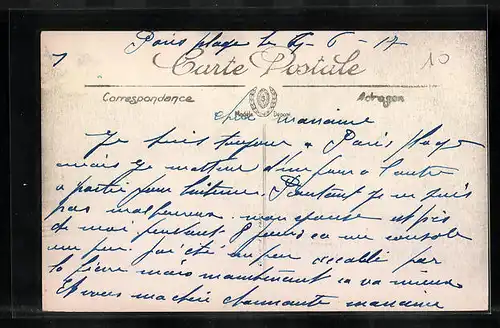 Paris plage le 6-17
10
1
Carte Postale
Correspondance
Adresse
Modèle Déposé
chère marraine
Je suis toujour a Paris plage
mais je m'attens d'un jour a l'autre
a partir pour
Pourtant je ne suis
pas malheureux mon est près
de moi pendant jours ca me console
un peu j'ai été un peu par
la fièvre mais maintenant ca va mieux
Et vous ma chère charmante marraine